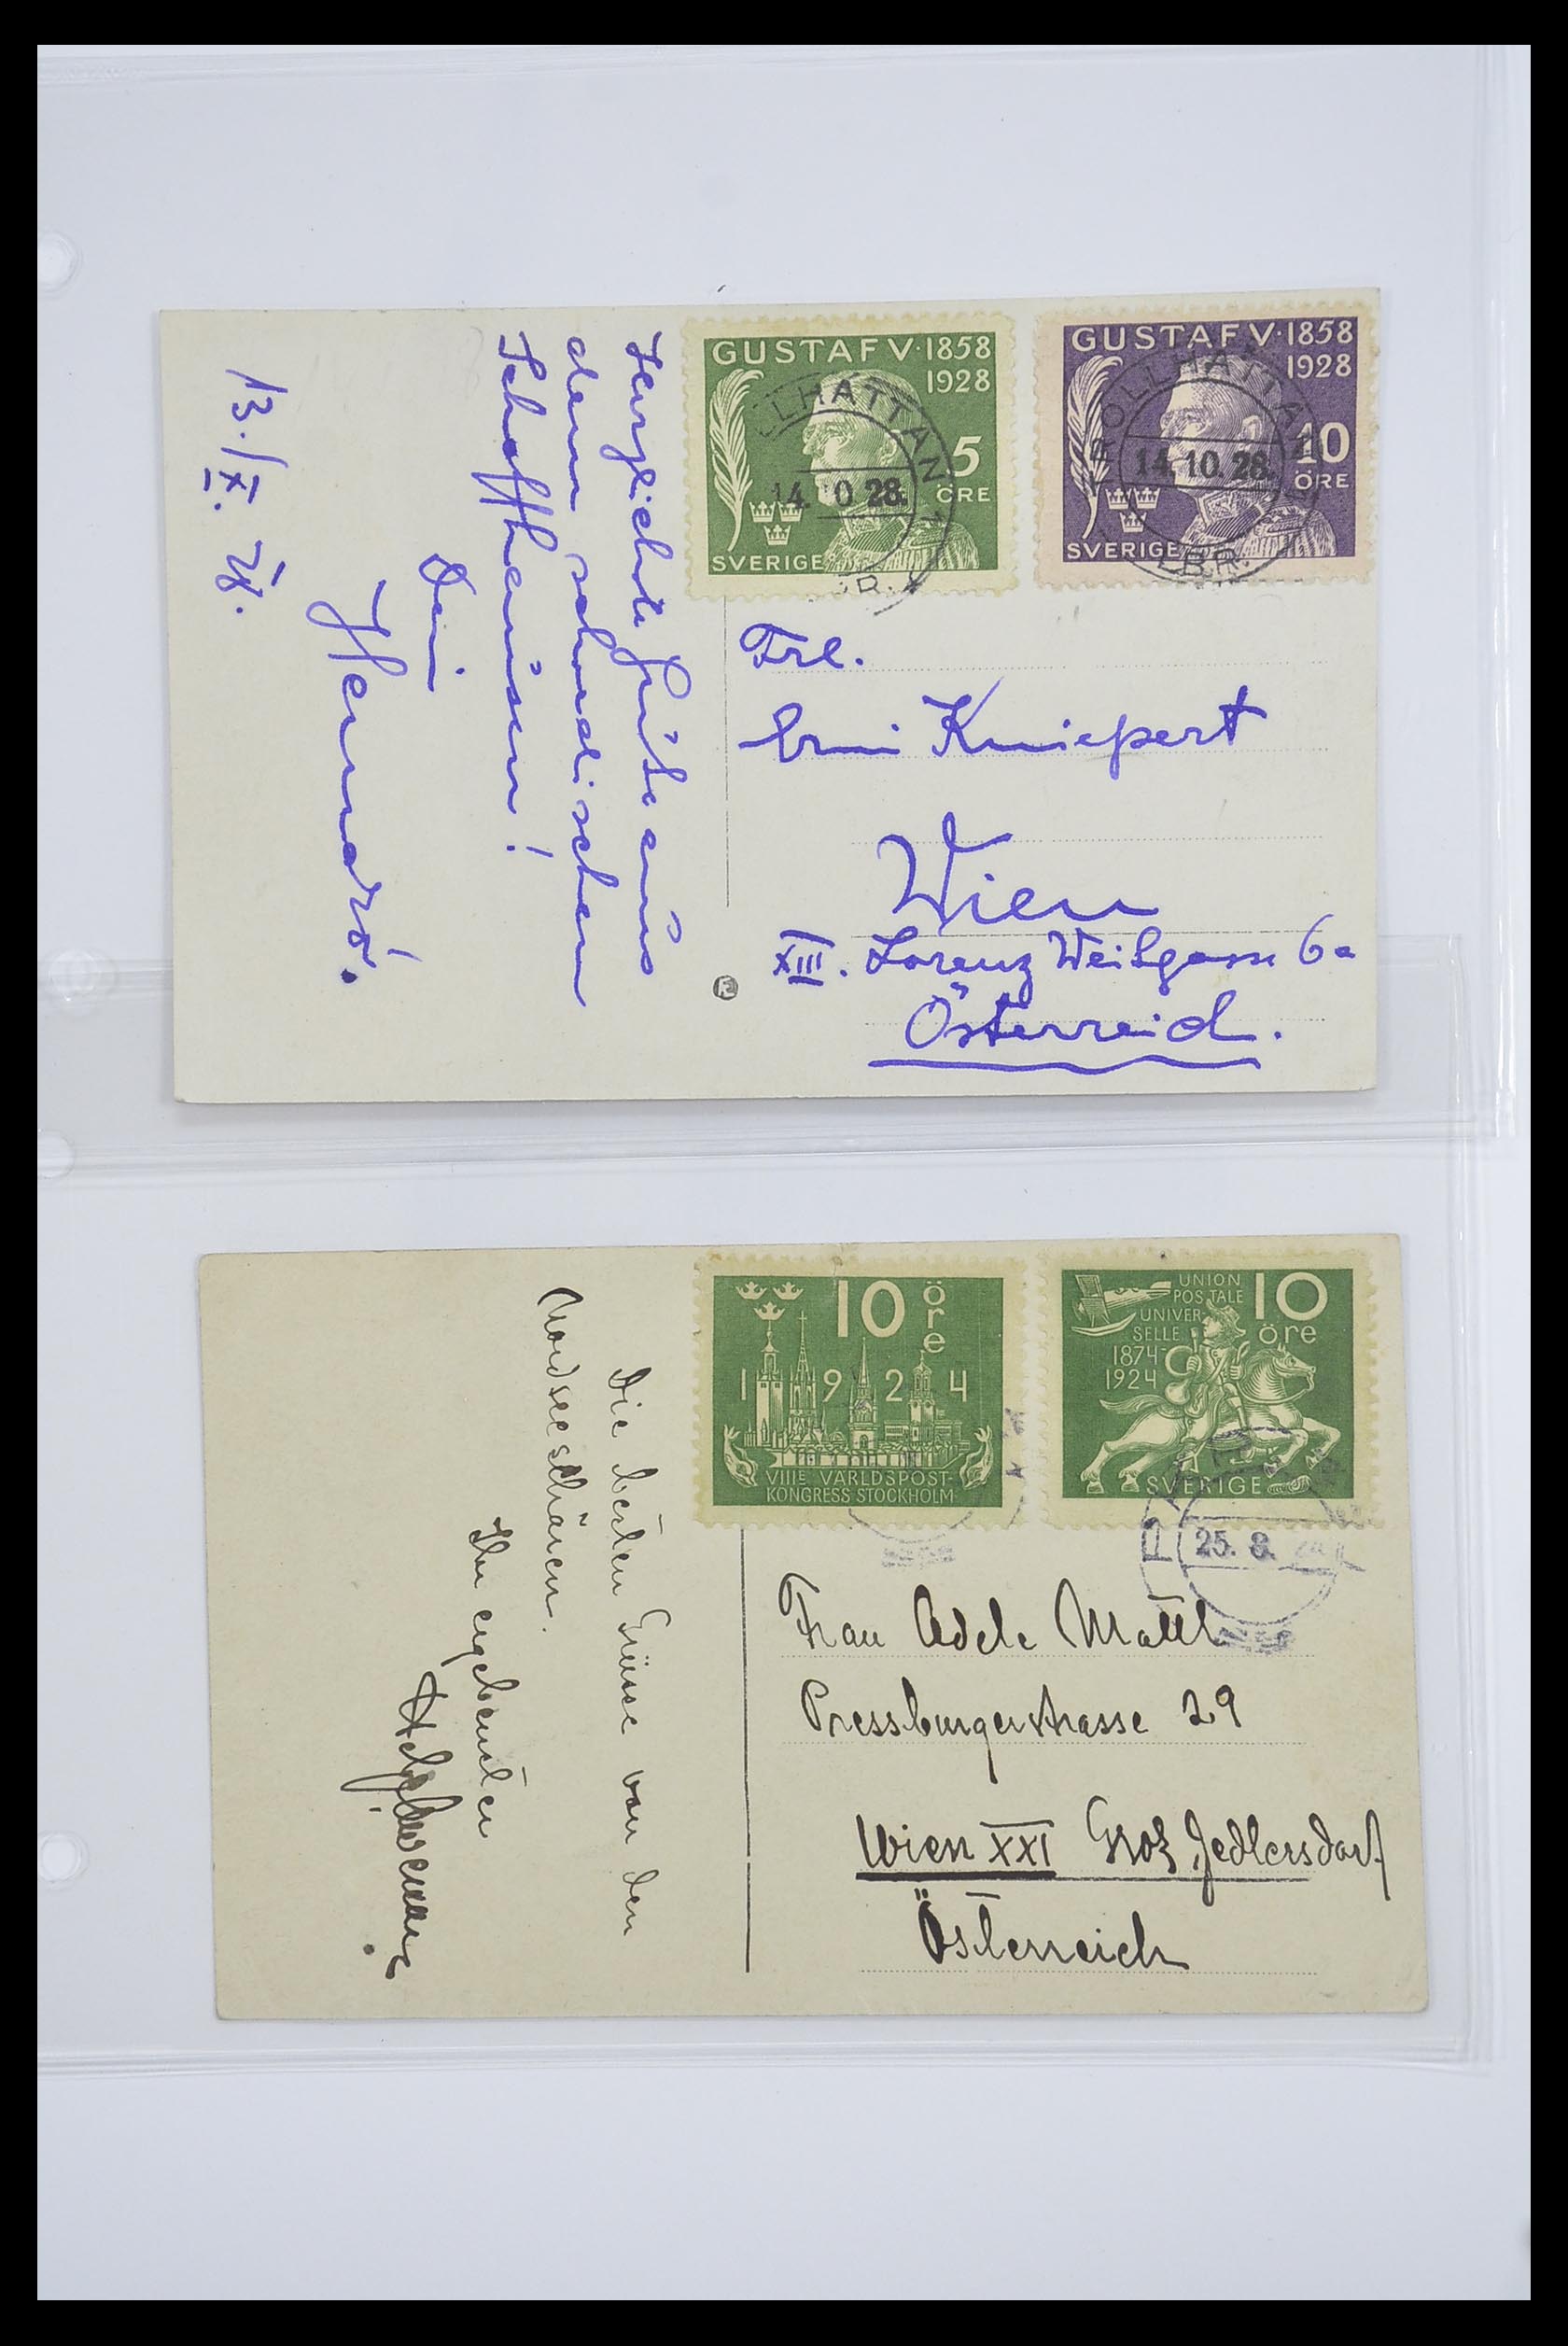 GUSTAF V·1858
1928
5
ÖRE
SVERIGE
LLHÄTTAN *
14. 10. 28.
GUSTAF V·1858
1928
10
ÖRE
SVERIGE
TROLLHÄTTAN
14. 10. 28.
LBR.
Herzlichste Grüße aus
dem schwedischen
Schaffhausen!
Dein
13./X. 28.
Frl.
Erni Kniepert
Wien
XIII. Lorenz Weißgasse 6a
Österreich.
10 öre
1924
VIIIE VÄRLDSPOST-
KONGRESS STOCKHOLM
UNION
POSTALE
UNIVER-
SELLE
1874-
1924
10
öre
SVERIGE
25. 8.
Die besten Grüsse von den
Nordseeschären.
Ihr ergebenster
Frau Adele Mattl
Pressburgerstrasse 29
Wien XXI Groß Jedlersdorf
Österreich